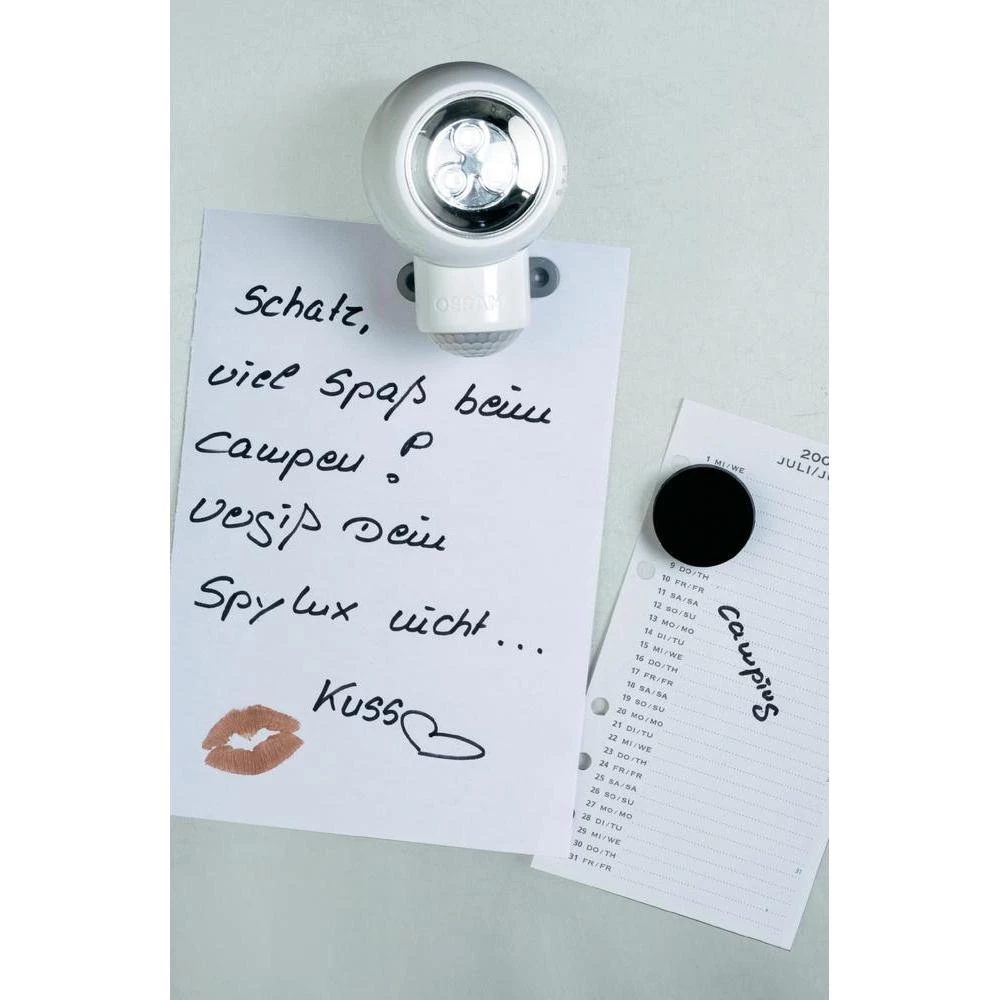 OSRAM
Schatz,
viel Spaß beim
Campen!
Vergiß Dein
Spylux nicht...
Kuss
200
JULI/J
1 MI/WE
9 DO/TH
10 FR/FR
11 SA/SA
12 SO/SU
13 MO/MO
14 DI/TU
15 MI/WE
16 DO/TH
17 FR/FR
18 SA/SA
19 SO/SU
20 MO/MO
21 DI/TU
22 MI/WE
23 DO/TH
24 FR/FR
25 SA/SA
26 SO/SU
27 MO/MO
28 DI/TU
29 MI/WE
30 DO/TH
31 FR/FR
camping
31